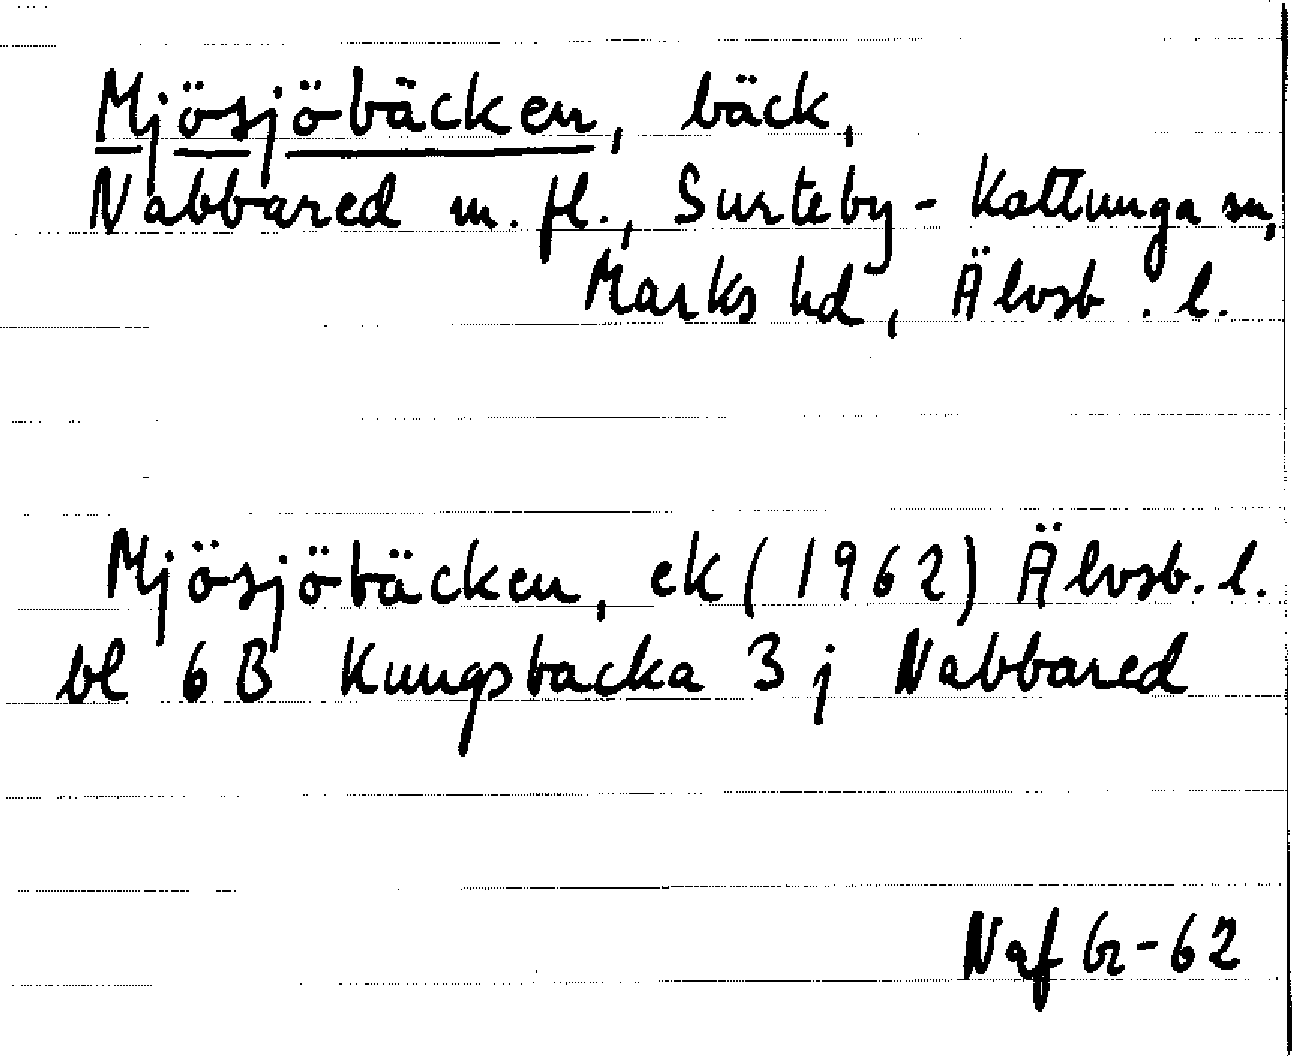 Mjösjöbäcken, bäck,
Nabbared m. fl., Surteby-Kattunga sn,
Marks hd, Älvsb. l.
Mjösjöbäcken, ek (1962) Älvsb. l.
bl 6 B Kungsbacka 3 j Nabbared
Naf Gr-62